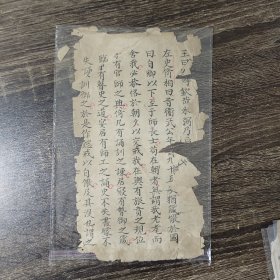 王曰
左史倚相曰昔衛武公年九十五矣猶箴儆於國
曰自卿以下至于師長士苟在朝者無謂我老耄而
舍我必恭恪於朝夕以交戒我在輿有旅賁之規位
宁有官師之典倚几有誦訓之諫居寢有暬御之箴
臨事有瞽史之道宴居有師工之誦史不失書矇不
失誦訓御之於是作懿戒以自儆及其沒也謂之